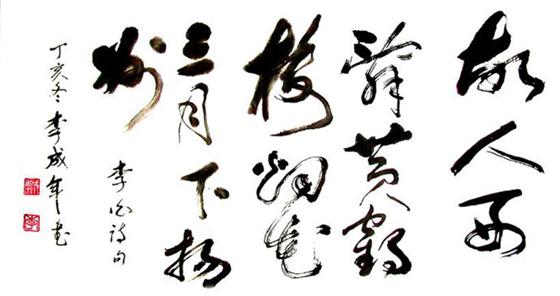 故人西
辞黄鹤
楼烟花
三月下扬
州
李白诗句
丁亥冬李成年书